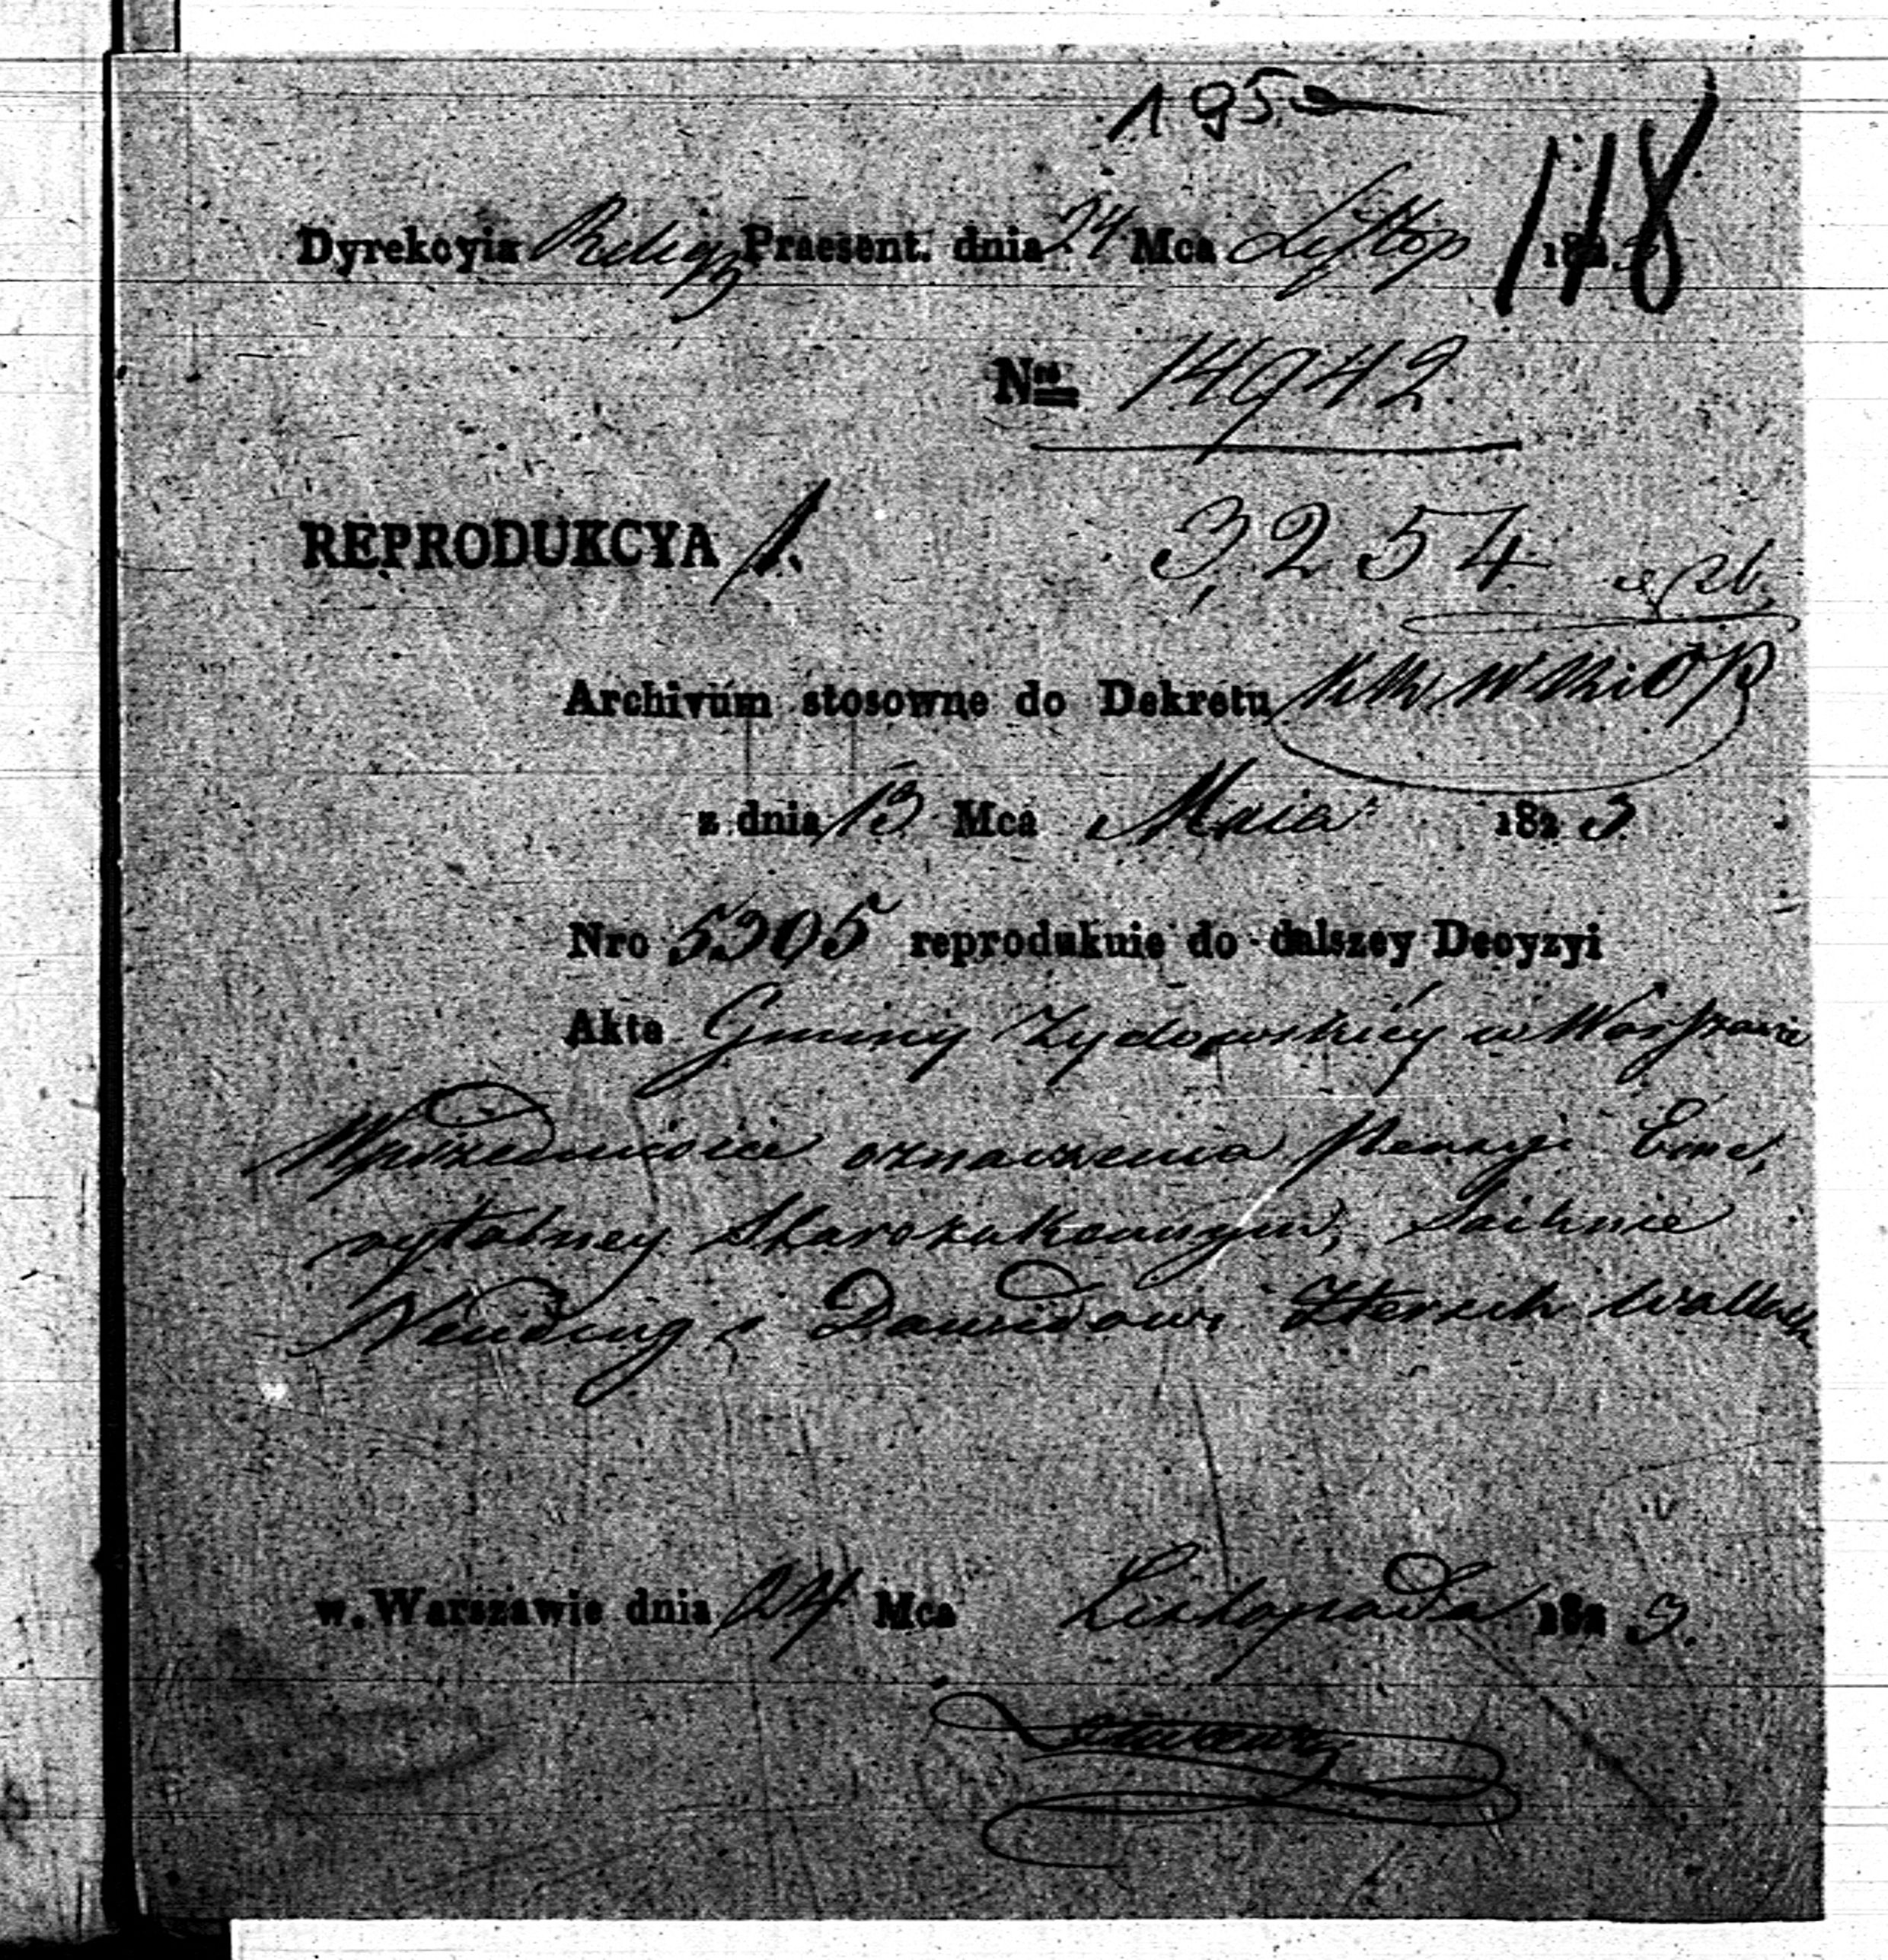 195
118
Dyrekcyia Religy Praesent. dnia 24 Mca Listop 182
Nro 14942
REPRODUKCYA 1.
3254
Archivum stosowne do Dekretu
z dnia 13 Mca Maia 1823
Nro 5305 reprodukuie do dalszey Decyzyi
Akta Gminy Zydowskiéy w Warszawie
W przedmiocie oznaczenia Pensyi Eme,
rytalney Starozakonnym,
Neuding i Dawidowi Hersch Wallach
w Warszawie dnia 24 Mca Listopada 1823.